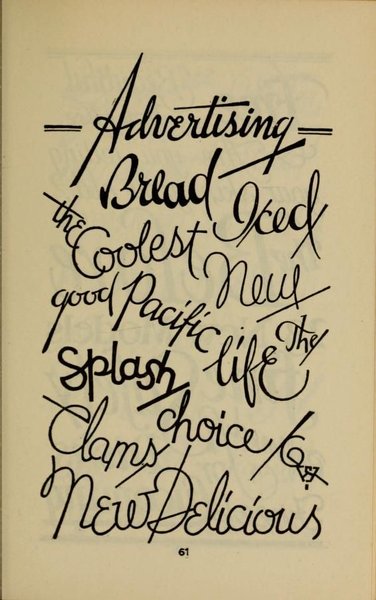 Advertising
Bread Iced
the Coolest
good Pacific New
Splash life The
Clams choice
New Delicious
61